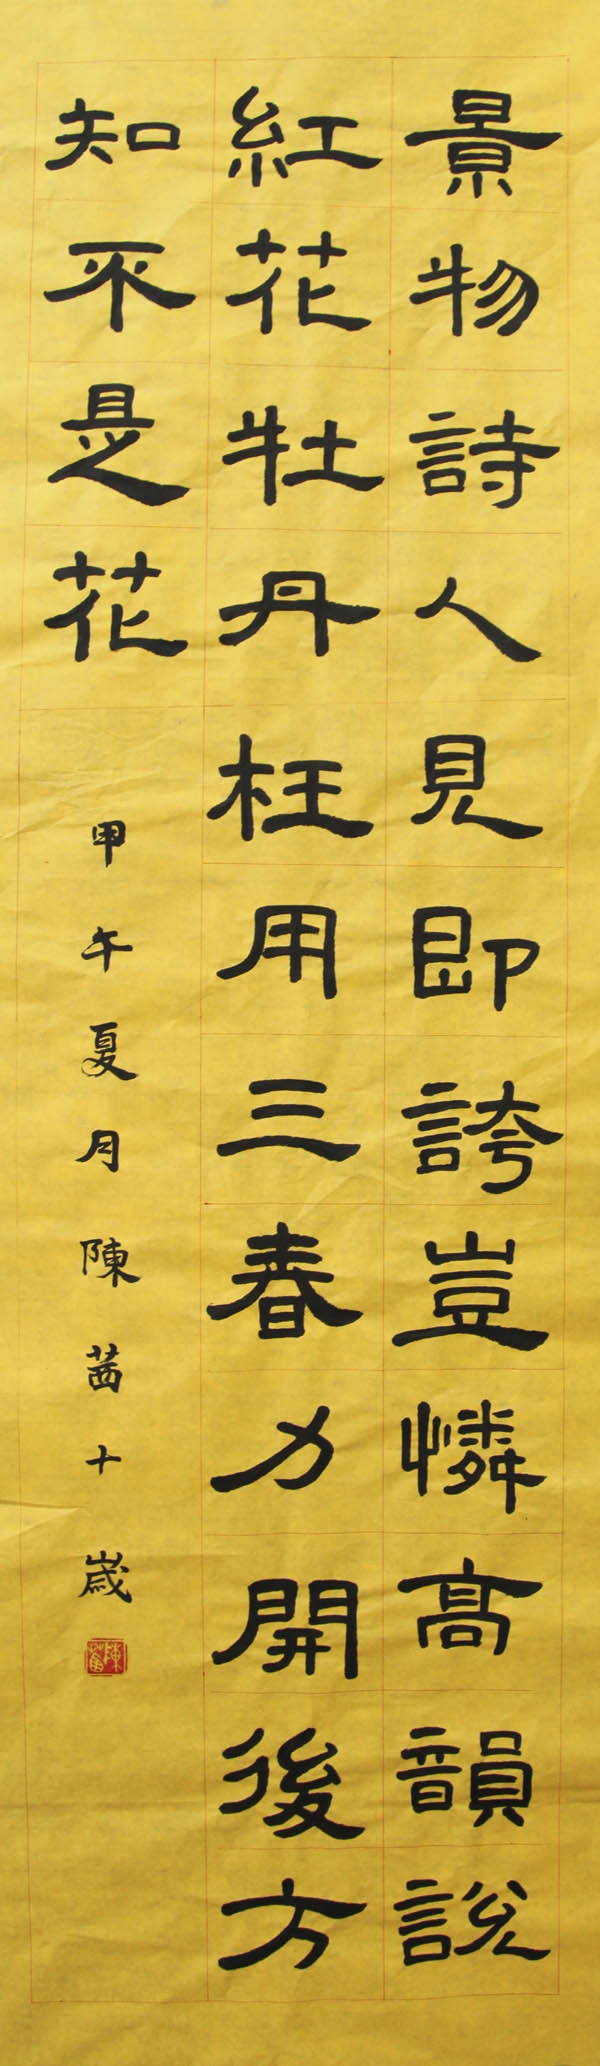 景物詩人見即誇豈憐高韻說
紅花牡丹枉用三春力開後方
知不是花
甲午夏月陳茜十歲
陳茜